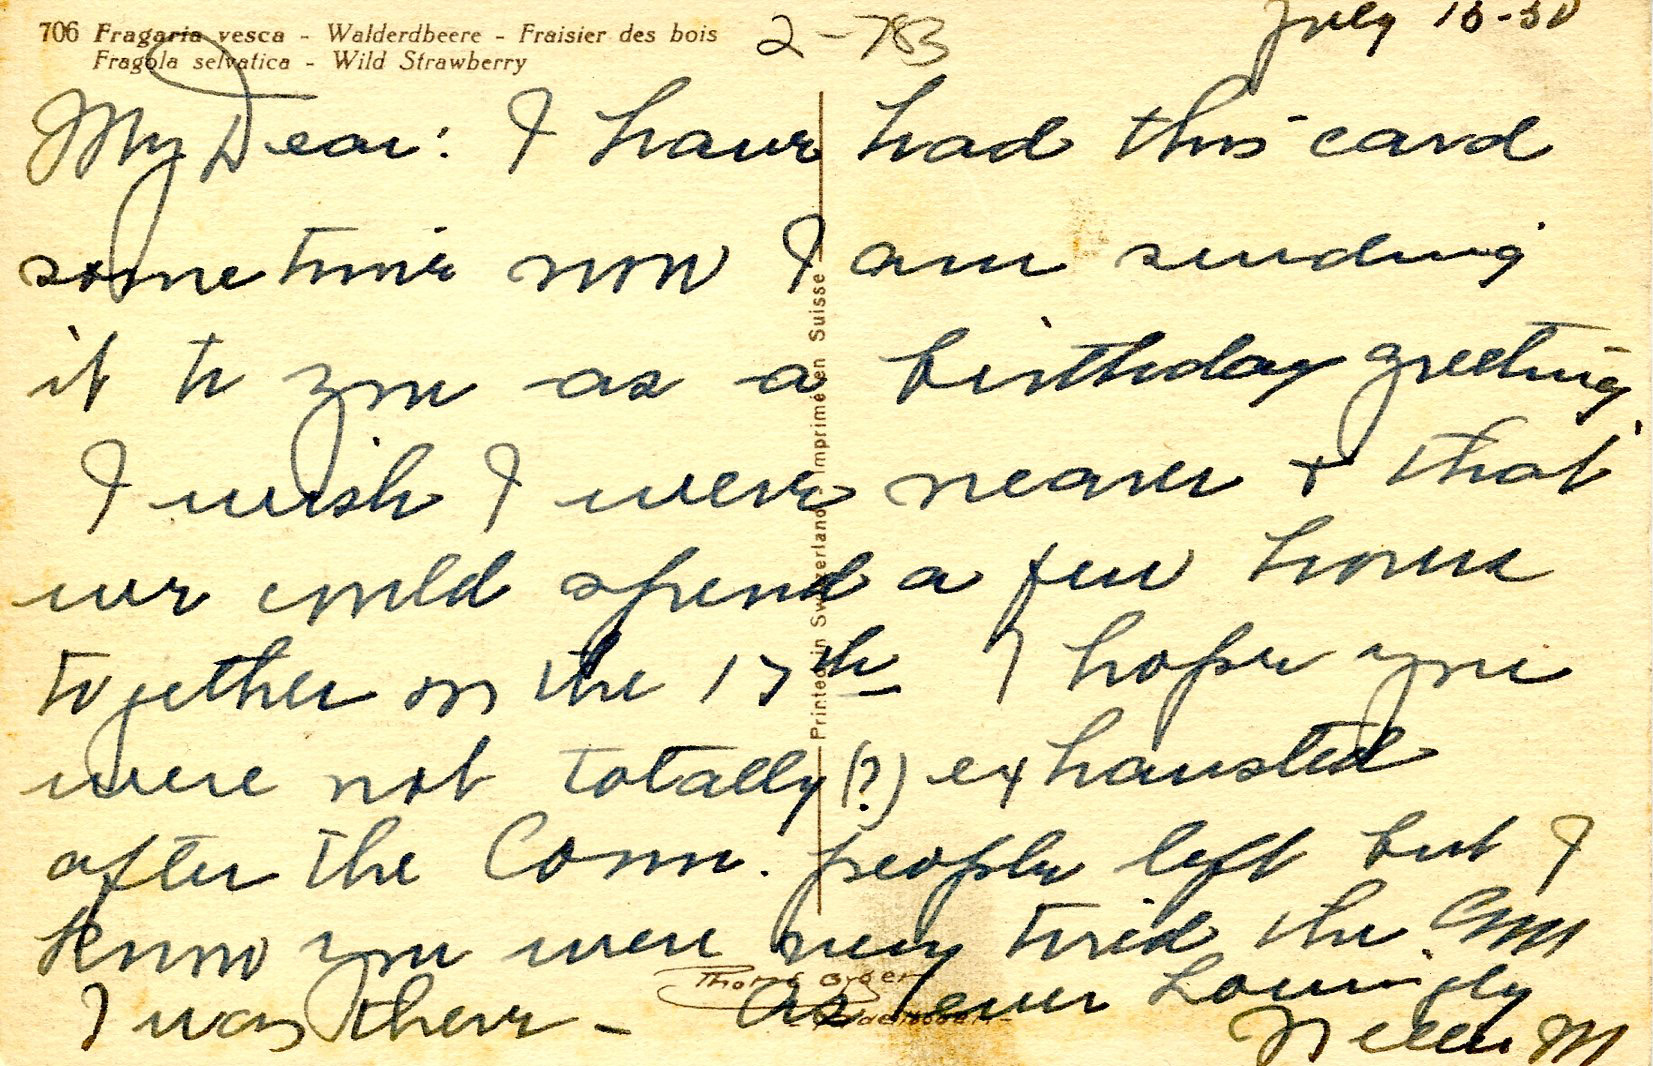 706 Fragaria vesca - Walderdbeere - Fraisier des bois
Fragola selvatica - Wild Strawberry
2-783
July 15-50
My Dear: I have had this card
sometime now I am sending
it to you as a birthday greeting
I wish I were nearer + that
we could spend a few hours
together on the 17th I hope you
were not totally (?) exhausted
after the Conn. people left but I
know you were very tired the
I was there - As ever Lovingly
Nellie M
Printed in Switzerland Imprimé en Suisse
Thor Gyger
Adelboden